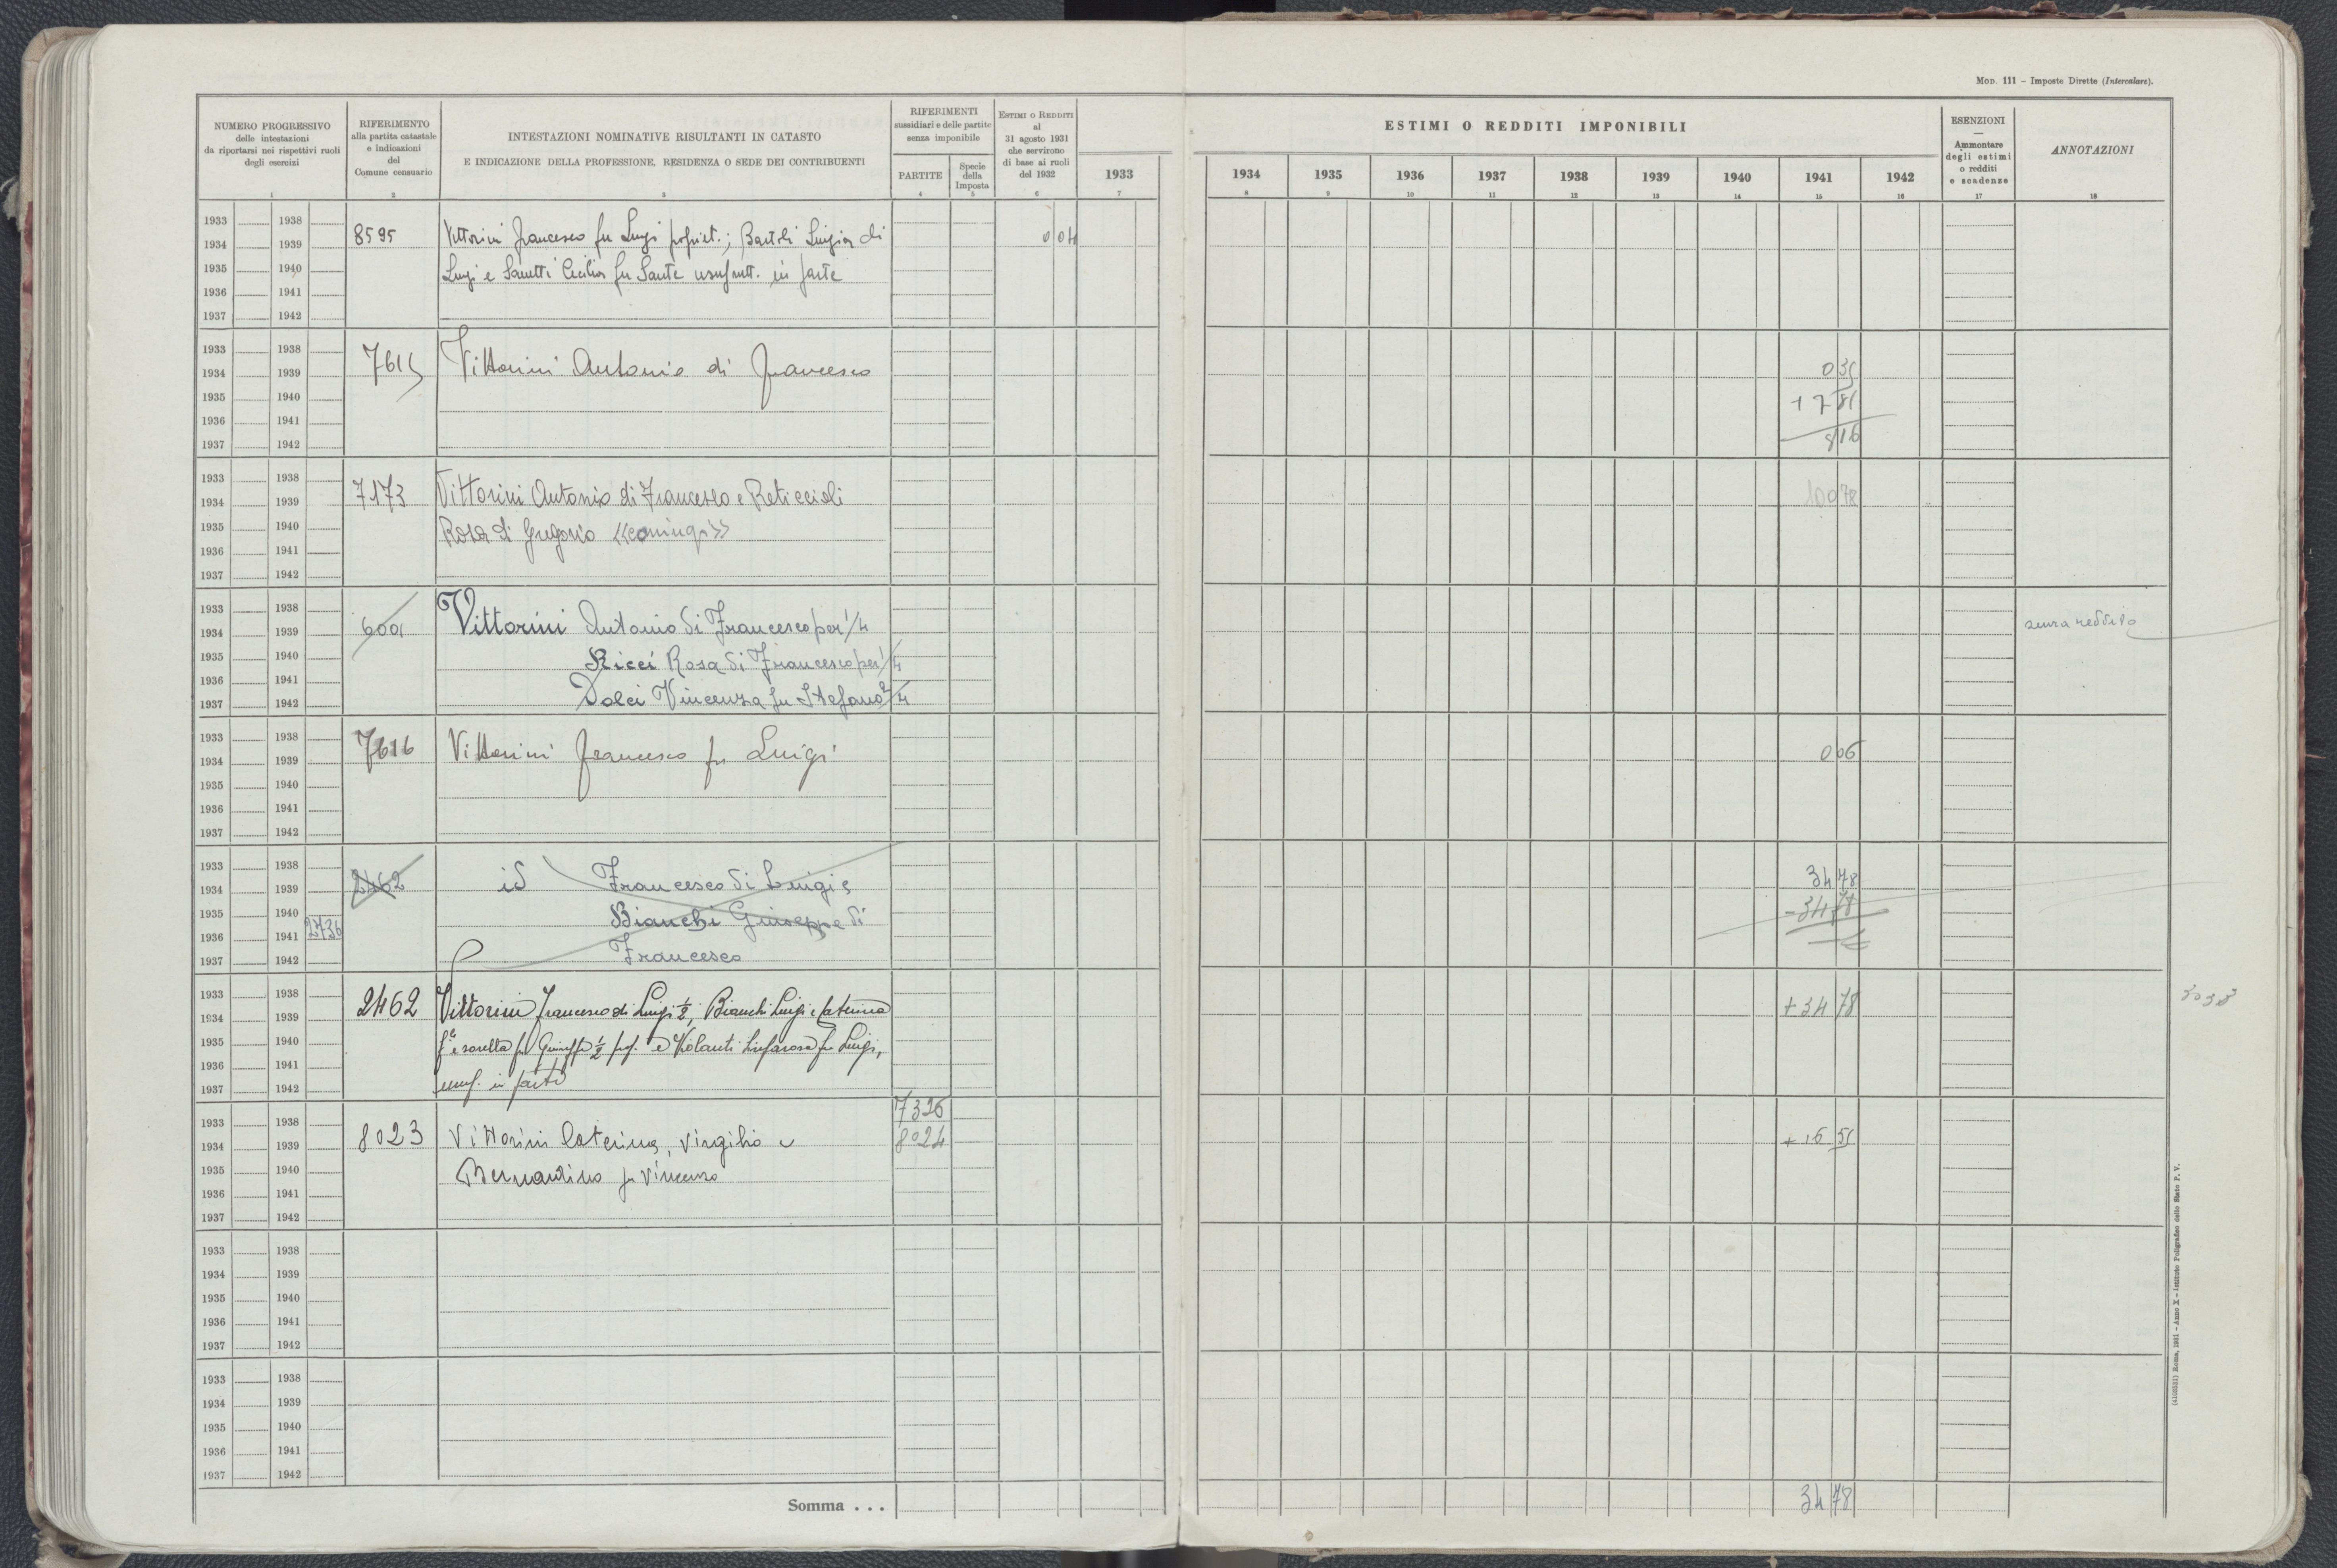 MOD. 111 – Imposte Dirette (Intercalare).
NUMERO PROGRESSIVO
delle intestazioni
da riportarsi nei rispettivi ruoli
degli esercizi
1
RIFERIMENTO
alla partita catastale
e indicazioni
del
Comune censuario
2
INTESTAZIONI NOMINATIVE RISULTANTI IN CATASTO
E INDICAZIONE DELLA PROFESSIONE, RESIDENZA O SEDE DEI CONTRIBUENTI
3
RIFERIMENTI
sussidiari e delle partite
senza imponibile
PARTITE
4
Specie
della
Imposta
5
ESTIMI O REDDITI
al
31 agosto 1931
che servirono
di base ai ruoli
del 1932
6
1933
7
ESTIMI O REDDITI IMPONIBILI
1934 1935 1936 1937 1938 1939 1940 1941 1942
8 9 10 11 12 13 14 15 16
ESENZIONI
—
Ammontare
degli estimi
o redditi
e scadenze
17
ANNOTAZIONI
18
1933 1938
1934 1939 8595 Vittorini Francesco fu Luigi propriet.; Bartoli Luigia di 0 04
1935 1940 Luigi e Sanetti Cecilia fu Sante usufrutt. in parte
1936 1941
1937 1942
1933 1938
1934 1939 7615 Vittorini Antonio di Francesco 0 35
1935 1940 + 7 81
1936 1941 8 16
1937 1942
1933 1938
1934 1939 7173 Vittorini Antonio di Francesco e Reticcioli 100 78
1935 1940 Rosa di Gregorio «coniugi»
1936 1941
1937 1942
1933 1938
1934 1939 6001 Vittorini Antonio di Francesco per 1/4 senza reddito
1935 1940 Ricci Rosa di Francesco per 1/4
1936 1941
1937 1942 Dolci Vincenza fu Stefano 2/4
1933 1938
1934 1939 7616 Vittorini Francesco fu Luigi 0 06
1935 1940
1936 1941
1937 1942
1933 1938
1934 1939 2462 id Francesco di Luigi e 34 78
1935 1940 Bianchi Giuseppe di - 34 78
1936 1941 2736
1937 1942 Francesco
1933 1938
1934 1939 2462 Vittorini Francesco di Luigi 1/2, Bianchi Luigi e Caterina + 34 78
1935 1940 f.e sorella fu Giuseppe 1/2 prop. e Violanti fu Luigi,
1936 1941
1937 1942 usuf. in parte
7326
1933 1938
1934 1939 8023 Vittorini Caterina, Virgilio e 8024 + 16 51
1935 1940 Bernardino fu Vincenzo
1936 1941
1937 1942
1933 1938
1934 1939
1935 1940
1936 1941
1937 1942
1933 1938
1934 1939
1935 1940
1936 1941
1937 1942
Somma . . . 34 78
(4100531) Roma, 1931 - Anno X - Istituto Poligrafico dello Stato P. V.